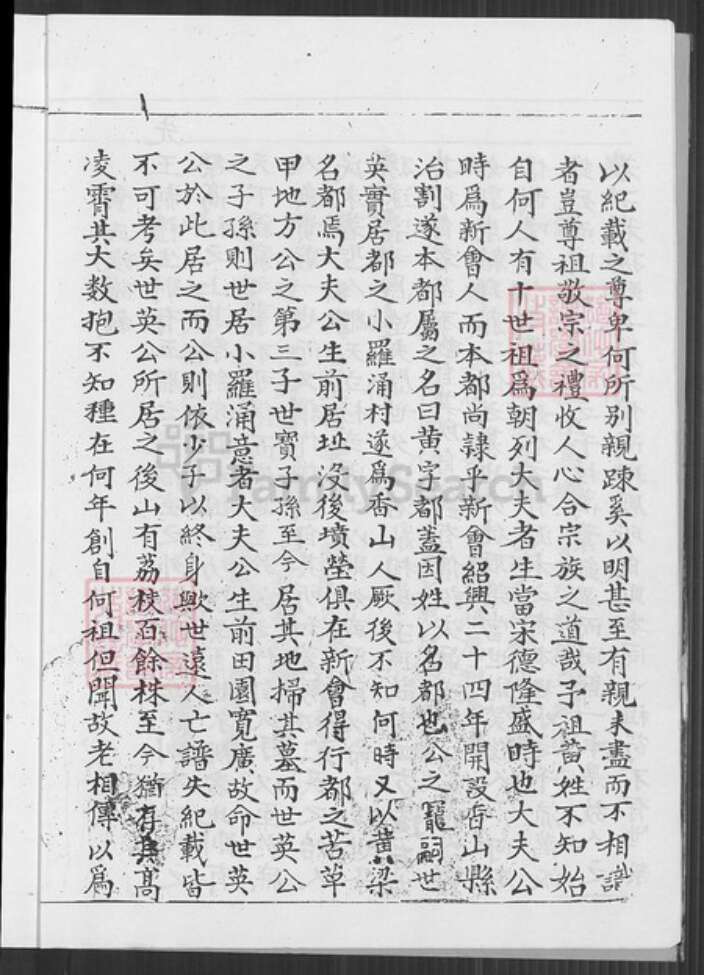 以紀載之尊卑何所別親踈奚以明甚至有親未盡而不相識
者豈尊祖敬宗之禮收人心合宗族之道哉予祖黃姓不知始
自何人有十世祖爲朝列大夫者生當宋德隆盛時也大夫公
時爲新會人而本都尚隷乎新會紹興二十四年開設香山縣
治割遂本都屬之名曰黃字都蓋因姓以名都也公之寵嗣世
英實居都之小羅涌村遂爲香山人厥後不知何時又以黃梁
名都焉大夫公生前居址沒後墳塋俱在新會得行都之苦草
甲地方公之第三子世寶子孫至今居其地掃其墓而世英公
之子孫則世居小羅涌意者大夫公生前田園寬廣故命世英
公於此居之而公則依少子以終身歟世遠人亡譜失紀載皆
不可考矣世英公所居之後山有荔枝百餘株至今猶有其高
凌霄其大数抱不知種在何年創自何祖但聞故老相傳以爲
FamilySearch